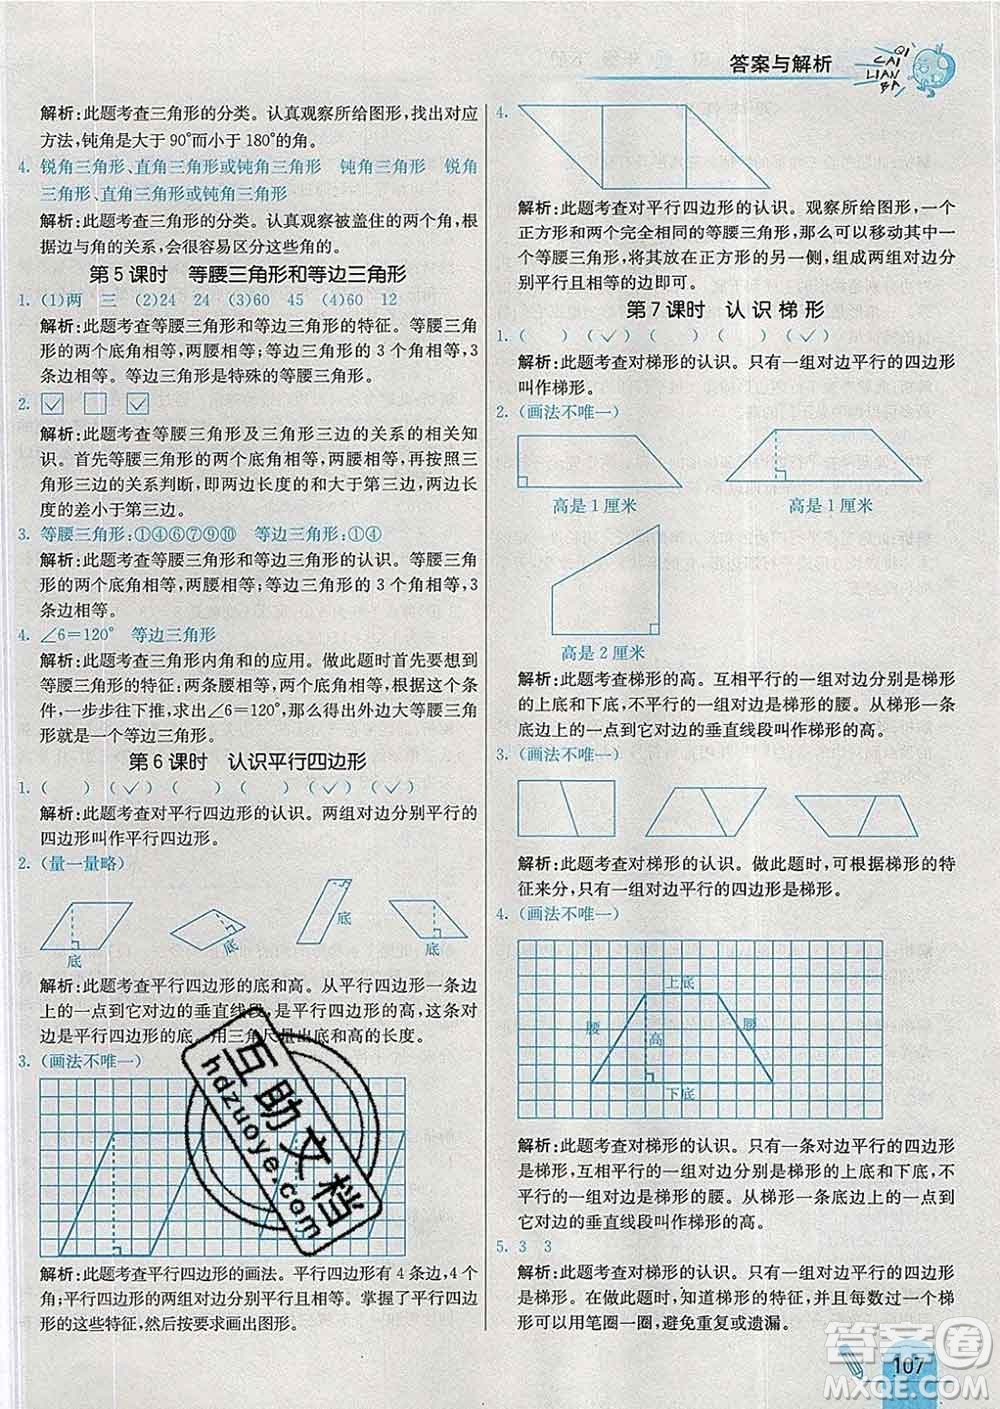 答案与解析
QI
CAI
LIAN
BA
解析:此题考查三角形的分类。认真观察所给图形,找出对应
方法,钝角是大于90°而小于180°的角。
4. 锐角三角形、直角三角形或钝角三角形　钝角三角形　锐角
三角形、直角三角形或钝角三角形
解析:此题考查三角形的分类。认真观察被盖住的两个角,根
据边与角的关系,会很容易区分这些角的。
第5课时　等腰三角形和等边三角形
1. (1)两　三　(2)24　24　(3)60　45　(4)60　12
解析:此题考查等腰三角形和等边三角形的特征。等腰三角
形的两个底角相等,两条腰相等;等边三角形的3个角相等,3
条边相等。等边三角形是特殊的等腰三角形。
2. ☑　□　☑
解析:此题考查等腰三角形及三角形三边的关系的相关知
识。首先等腰三角形的两个底角相等,两腰相等,再按照三
角形三边的关系判断,即两边长度的和大于第三边,两边长
度的差小于第三边。
3. 等腰三角形:①④⑥⑦⑨⑩　等边三角形:①④
解析:此题考查等腰三角形和等边三角形的认识。等腰三角
形的两个底角相等,两条腰相等;等边三角形的3个角相等,3
条边相等。
4. ∠6=120°　等边三角形
解析:此题考查三角形内角和的应用。做此题时首先要想到
等腰三角形的特征:两条腰相等,两个底角相等。根据已知条
件,一步步往下推,求出∠6=120°,那么得出外边大等腰三角
形就是一个等边三角形。
第6课时　认识平行四边形
1. (　)　(✓)　(　)　(✓)　(✓)
解析:此题考查对平行四边形的认识。两组对边分别平行的
四边形叫作平行四边形。
2. (量一量略)
底
底
底
底
解析:此题考查平行四边形的底和高。从平行四边形一条边上
的一点到它对边的垂直线段,是平行四边形的高,这条对边
是平行四边形的底。用三角尺量出底和高的长度。
3. (画法不唯一)
解析:此题考查平行四边形的画法。平行四边形有4条边,4个
角;平行四边形的两组对边分别平行且相等。掌握了平行四边形
的这些特征,然后按要求画出图形。
4.
解析:此题考查对平行四边形的认识。观察所给图形,一个
正方形和两个完全相同的等腰三角形,移动其中一个等腰三
角形,将其放在正方形的另一侧,组成两组对边分
别平行且相等的边即可。
第7课时　认识梯形
1. (　)　(✓)　(　)　(✓)　(✓)
解析:此题考查对梯形的认识。只有一组对边平行的四边形
叫作梯形。
2. (画法不唯一)
高是1厘米
高是1厘米
高是2厘米
解析:此题考查梯形的高。互相平行的一组对边分别是梯形的
上底和下底,不平行的一组对边是梯形的腰。从梯形一条底
边上的一点到它对边的垂直线段叫作梯形的高。
3. (画法不唯一)
解析:此题考查对梯形的认识。做此题时,可根据梯形的
特征来分,只有一组对边平行的四边形是梯形。
4. (画法不唯一)
上底
腰
高
腰
下底
解析:此题考查对梯形的认识。只有一条对边平行的四边形
是梯形,互相平行的一组对边分别是梯形的上底和下底,不
平行的一组对边是梯形的腰。从梯形一条底边上的一点到
它对边的垂直线段叫作梯形的高。
5. 3　3
解析:此题考查对梯形的认识。只有一组对边平行的四边形是
梯形。在做此题时,知道梯形的特征,并且每数过一个梯
形可以用笔圈一圈,避免重复或遗漏。
107
互助文档
hdzuoye.com
答案圈
MXQE.COM